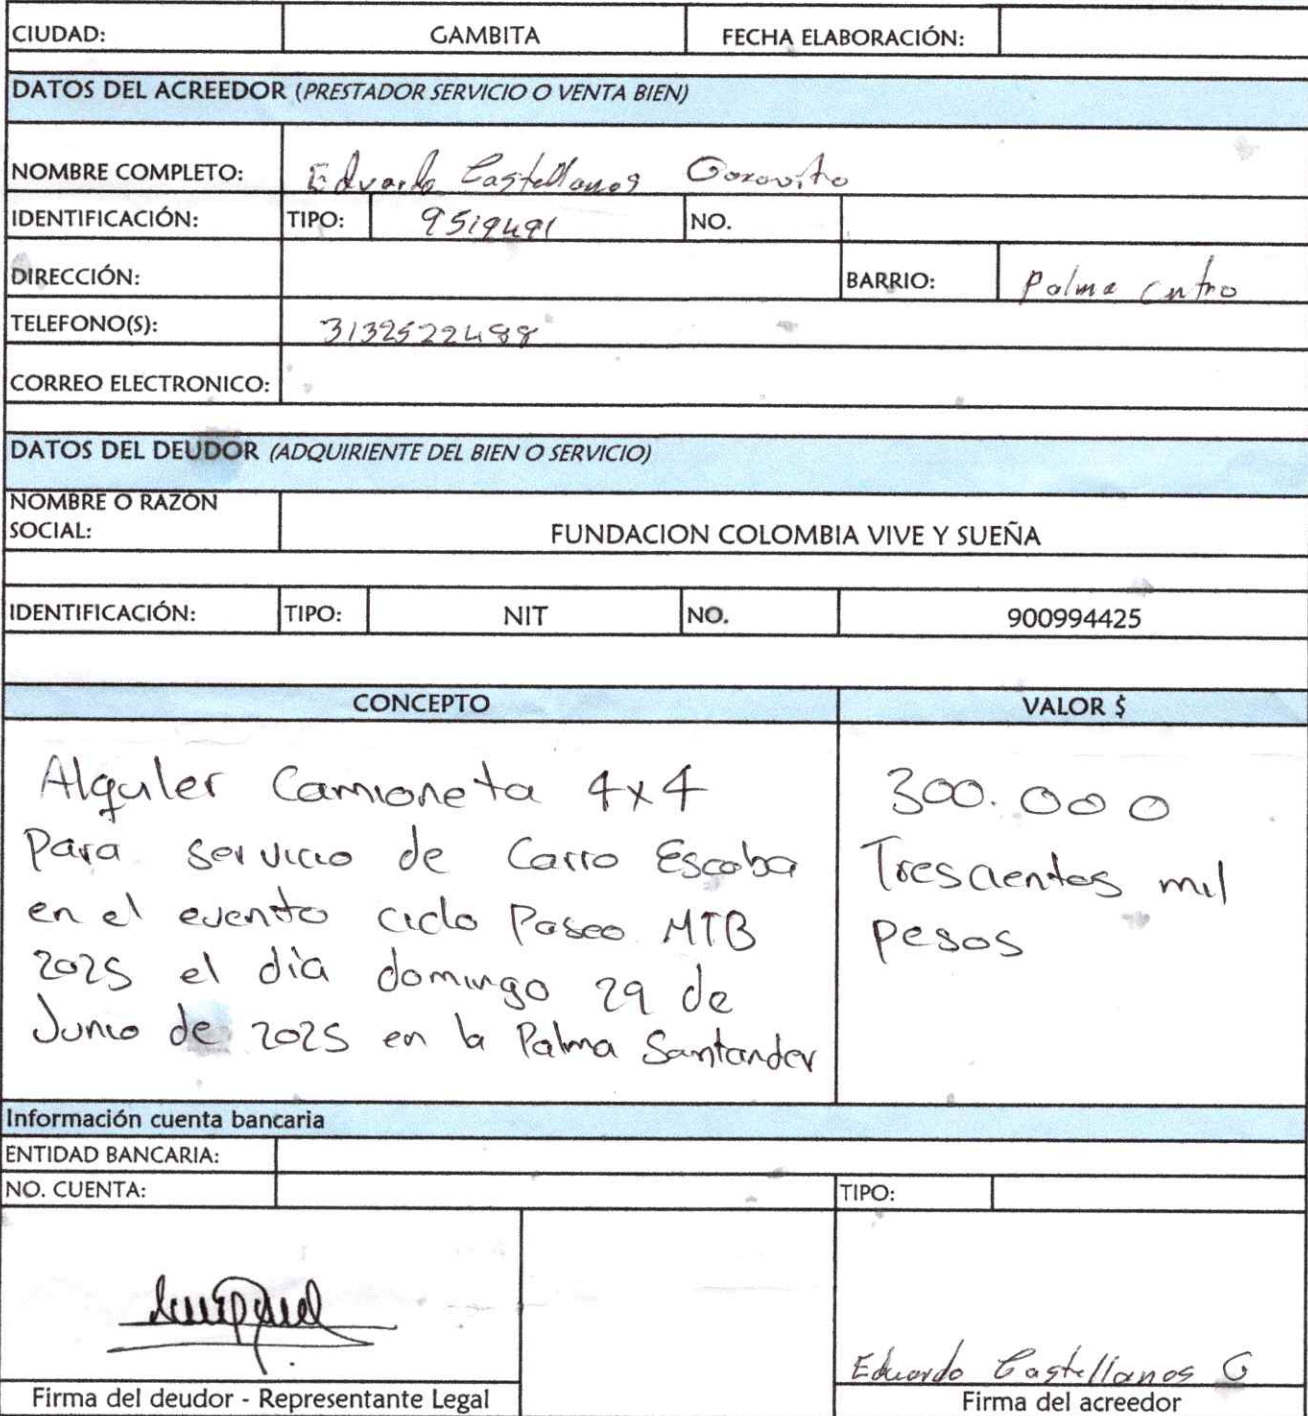 CIUDAD: GAMBITA FECHA ELABORACIÓN:
DATOS DEL ACREEDOR (PRESTADOR SERVICIO O VENTA BIEN)
NOMBRE COMPLETO: Eduardo Castellanos Gorovito
IDENTIFICACIÓN: TIPO: 9519491 NO.
DIRECCIÓN: BARRIO: Palma Cntro
TELEFONO(S): 3132522488
CORREO ELECTRONICO:
DATOS DEL DEUDOR (ADQUIRIENTE DEL BIEN O SERVICIO)
NOMBRE O RAZÓN
SOCIAL: FUNDACION COLOMBIA VIVE Y SUEÑA
IDENTIFICACIÓN: TIPO: NIT NO. 900994425
CONCEPTO VALOR $
Alquiler Camioneta 4x4 300.000
Para servicio de Carro Escoba Trescientos mil
en el evento ciclo Paseo MTB pesos
2025 el día domingo 29 de
Junio de 2025 en la Palma Santander
Información cuenta bancaria
ENTIDAD BANCARIA:
NO. CUENTA: TIPO:
Eduardo Castellanos G
Firma del deudor - Representante Legal Firma del acreedor